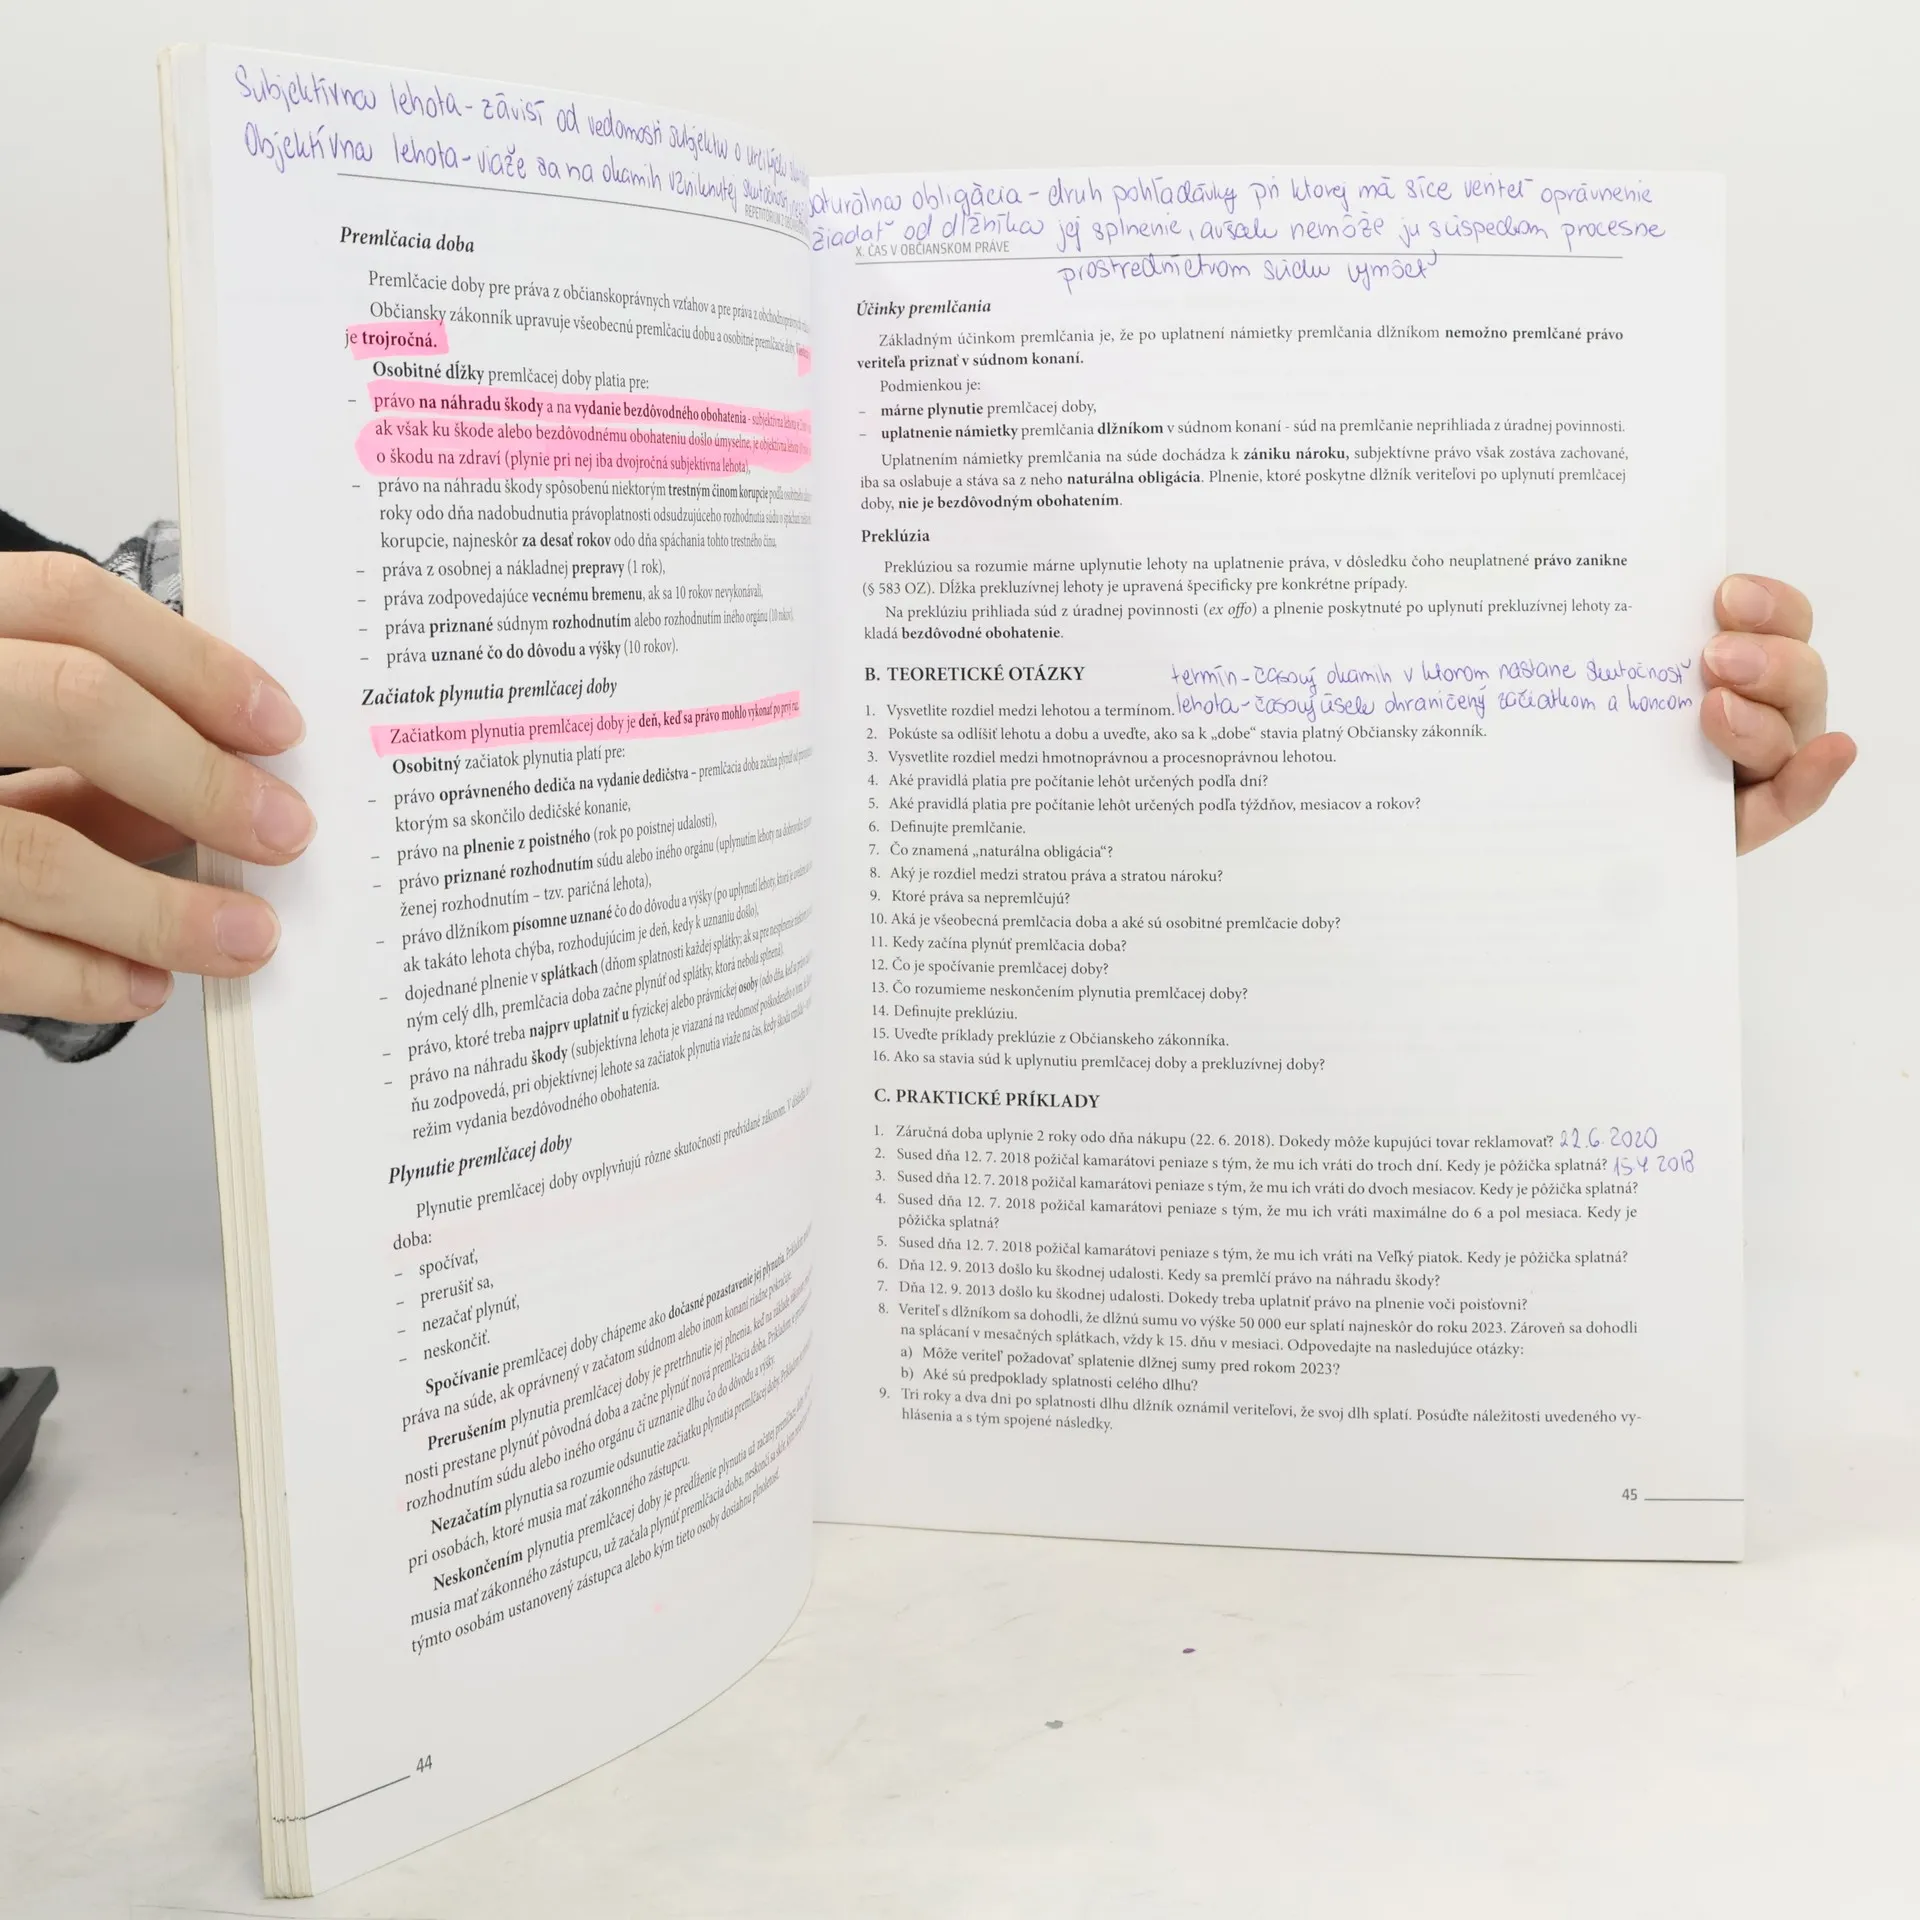 Subjektívna lehota - závisí od vedomosti subjektu o určitých
Objektívna lehota - viaže sa na okamih vzniknutej skutočnosti
REPETITÓRIUM Z
Premlčacia doba
Premlčacie doby pre práva z občianskoprávnych vzťahov a pre práva z
Občiansky zákonník upravuje všeobecnú premlčaciu dobu a osobitné premlčacie doby.
je trojročná.
Osobitné dĺžky premlčacej doby platia pre:
– právo na náhradu škody a na vydanie bezdôvodného obohatenia - subjektívna lehota
ak však ku škode alebo bezdôvodnému obohateniu došlo úmyselne, je objektívna lehota
o škodu na zdraví (plynie pri nej iba dvojročná subjektívna lehota),
– právo na náhradu škody spôsobenú niektorým trestným činom korupcie podľa
roky odo dňa nadobudnutia právoplatnosti odsudzujúceho rozhodnutia súdu o spáchaní
korupcie, najneskôr za desať rokov odo dňa spáchania tohto trestného činu,
– práva z osobnej a nákladnej prepravy (1 rok),
– práva zodpovedajúce vecnému bremenu, ak sa 10 rokov nevykonávali,
– práva priznané súdnym rozhodnutím alebo rozhodnutím iného orgánu (10 rokov),
– práva uznané čo do dôvodu a výšky (10 rokov).
Začiatok plynutia premlčacej doby
Začiatkom plynutia premlčacej doby je deň, keď sa právo mohlo vykonať po prvý raz.
Osobitný začiatok plynutia platí pre:
– právo oprávneného dediča na vydanie dedičstva – premlčacia doba začína plynúť od
ktorým sa skončilo dedičské konanie,
– právo na plnenie z poistného (rok po poistnej udalosti),
– právo priznané rozhodnutím súdu alebo iného orgánu (uplynutím lehoty na
ženej rozhodnutím – tzv. paričná lehota),
– právo dlžníkom písomne uznané čo do dôvodu a výšky (po uplynutí lehoty, ktorá je
ak takáto lehota chýba, rozhodujúcim je deň, kedy k uznaniu došlo),
– dojednané plnenie v splátkach (dňom splatnosti každej splátky; ak sa pre nesplnenie
ným celý dlh, premlčacia doba začne plynúť od splátky, ktorá nebola splnená),
– právo, ktoré treba najprv uplatniť u fyzickej alebo právnickej osoby (odo dňa, keď
– právo na náhradu škody (subjektívna lehota je viazaná na vedomosť poškodeného o tom,
ňu zodpovedá, pri objektívnej lehote sa začiatok plynutia viaže na čas, kedy škoda vznikla
režim vydania bezdôvodného obohatenia.
Plynutie premlčacej doby
Plynutie premlčacej doby ovplyvňujú rôzne skutočnosti predvídané zákonom. V
doba:
– spočívať,
– prerušiť sa,
– nezačať plynúť,
– neskončiť.
Spočívanie premlčacej doby chápeme ako dočasné pozastavenie jej plynutia.
práva na súde, ak oprávnený v začatom súdnom alebo inom konaní riadne pokračuje.
Prerušením plynutia premlčacej doby je pretrhnutie jej plynenia, keď na základe
nosti prestane plynúť pôvodná doba a začne plynúť nová premlčacia doba. Príkladom
rozhodnutím súdu alebo iného orgánu či uznanie dlhu čo do dôvodu a výšky.
Nezačatím plynutia sa rozumie odsunutie začiatku plynutia premlčacej doby.
pri osobách, ktoré musia mať zákonného zástupcu.
Neskončením plynutia premlčacej doby je predĺženie plynutia už začatej premlčacej doby
musia mať zákonného zástupcu, už začala plynúť premlčacia doba, neskončí sa skôr,
týmto osobám ustanovený zástupca alebo kým tieto osoby dosiahnu plnoletosť.
44
naturálna obligácia - druh pohľadávky pri ktorej má síce veriteľ oprávnenie
žiadať od dlžníka jej splnenie, avšak nemôže ju úspechom procesne
X. ČAS V OBČIANSKOM PRÁVE
prostredníctvom súdu vymôcť
Účinky premlčania
Základným účinkom premlčania je, že po uplatnení námietky premlčania dlžníkom nemožno premlčané právo
veriteľa priznať v súdnom konaní.
Podmienkou je:
– márne plynutie premlčacej doby,
– uplatnenie námietky premlčania dlžníkom v súdnom konaní - súd na premlčanie neprihliada z úradnej povinnosti.
Uplatnením námietky premlčania na súde dochádza k zániku nároku, subjektívne právo však zostáva zachované,
iba sa oslabuje a stáva sa z neho naturálna obligácia. Plnenie, ktoré poskytne dlžník veriteľovi po uplynutí premlčacej
doby, nie je bezdôvodným obohatením.
Preklúzia
Preklúziou sa rozumie márne uplynutie lehoty na uplatnenie práva, v dôsledku čoho neuplatnené právo zanikne
(§ 583 OZ). Dĺžka prekluzívnej lehoty je upravená špecificky pre konkrétne prípady.
Na preklúziu prihliada súd z úradnej povinnosti (ex offo) a plnenie poskytnuté po uplynutí prekluzívnej lehoty za-
kladá bezdôvodné obohatenie.
B. TEORETICKÉ OTÁZKY
termín - časový okamih v ktorom nastane skutočnosť
1. Vysvetlite rozdiel medzi lehotou a termínom. lehota - časový úsek ohraničený začiatkom a koncom
2. Pokúste sa odlíšiť lehotu a dobu a uveďte, ako sa k „dobe“ stavia platný Občiansky zákonník.
3. Vysvetlite rozdiel medzi hmotnoprávnou a procesnoprávnou lehotou.
4. Aké pravidlá platia pre počítanie lehôt určených podľa dní?
5. Aké pravidlá platia pre počítanie lehôt určených podľa týždňov, mesiacov a rokov?
6. Definujte premlčanie.
7. Čo znamená „naturálna obligácia“?
8. Aký je rozdiel medzi stratou práva a stratou nároku?
9. Ktoré práva sa nepremlčujú?
10. Aká je všeobecná premlčacia doba a aké sú osobitné premlčacie doby?
11. Kedy začína plynúť premlčacia doba?
12. Čo je spočívanie premlčacej doby?
13. Čo rozumieme neskončením plynutia premlčacej doby?
14. Definujte preklúziu.
15. Uveďte príklady preklúzie z Občianskeho zákonníka.
16. Ako sa stavia súd k uplynutiu premlčacej doby a prekluzívnej doby?
C. PRAKTICKÉ PRÍKLADY
1. Záručná doba uplynie 2 roky odo dňa nákupu (22. 6. 2018). Dokedy môže kupujúci tovar reklamovať? 22.6.2020
2. Sused dňa 12. 7. 2018 požičal kamarátovi peniaze s tým, že mu ich vráti do troch dní. Kedy je pôžička splatná? 15.7.2018
3. Sused dňa 12. 7. 2018 požičal kamarátovi peniaze s tým, že mu ich vráti do dvoch mesiacov. Kedy je pôžička splatná?
4. Sused dňa 12. 7. 2018 požičal kamarátovi peniaze s tým, že mu ich vráti maximálne do 6 a pol mesiaca. Kedy je
pôžička splatná?
5. Sused dňa 12. 7. 2018 požičal kamarátovi peniaze s tým, že mu ich vráti na Veľký piatok. Kedy je pôžička splatná?
6. Dňa 12. 9. 2013 došlo ku škodnej udalosti. Kedy sa premlčí právo na náhradu škody?
7. Dňa 12. 9. 2013 došlo ku škodnej udalosti. Dokedy treba uplatniť právo na plnenie voči poisťovni?
8. Veriteľ s dlžníkom sa dohodli, že dlžnú sumu vo výške 50 000 eur splatí najneskôr do roku 2023. Zároveň sa dohodli
na splácaní v mesačných splátkach, vždy k 15. dňu v mesiaci. Odpovedajte na nasledujúce otázky:
a) Môže veriteľ požadovať splatenie dlžnej sumy pred rokom 2023?
b) Aké sú predpoklady splatnosti celého dlhu?
9. Tri roky a dva dni po splatnosti dlhu dlžník oznámil veriteľovi, že svoj dlh splatí. Posúďte náležitosti uvedeného vy-
hlásenia a s tým spojené následky.
45